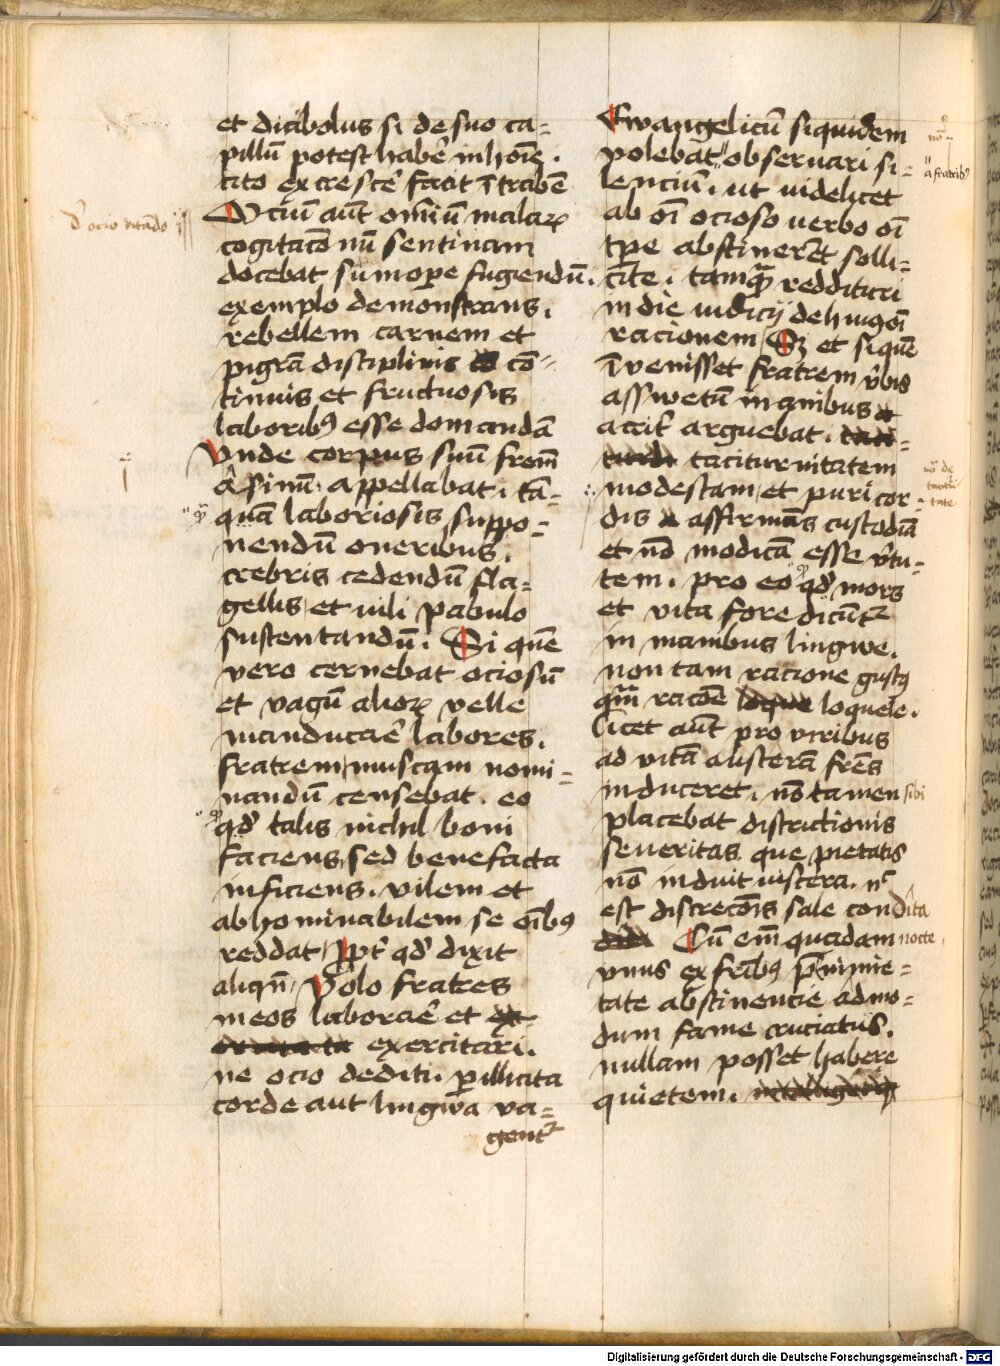 et diabolus si de suo ca=
pillū potest habē in hoīe.
cito excrescē facit ī trabē
Ociū aūt omīū malaꝝ
cogitacōnū sentinam
docebat sūmope fugiendū.
exemplo demonstrans.
rebellem carnem et
pigrā disciplinis cō=
tinuis et fructuosis
laboribꝰ esse domandā
Unde corpus suū frem̄
asinū appellabat. tā=
quā laboriosis suppo=
nendū oneribus.
crebris cedendū fla=
gellis et uili pabulo
sustentandū. Si quē
vero cernebat ociosū
et vagū alioꝝ velle
manducare labores.
fratrem muscam nomi=
nandū censebat. eo
qd̄ talis nichil boni
faciens, sed benefacta
inficiens. vilem et
abhominabilem se oībꝰ
reddat ꝓpt̄ qd̄ dixit
aliqn̄. Volo fratres
meos laborare et
exercitari.
ne ocio dediti. ꝑ illicita
corde aut lingwa va=
gent᷑
Ewangelicū siquidem
volebat obseruari si=
lenciū. ut videlicet
ab oī ocioso verbo oī
tꝑe abstinerēt solli=
cite. tamqͣ reddituri
in die iudicij de hꝰmōi
racionem Sꝫ et si quē
īvenisset fratrem v̄bis
asswetū inanibus
acrit̄ arguebat.
taciturnitatem
modestam et puri cor=
dis affirmās custodiā
et nō modicā esse v̄tu=
tem. pro eo qd̄ mors
et vita fore dicūt᷑
in manibus lingwe.
non tam racione gustꝰ
qͣm racōe loquele.
licet aūt pro viribus
ad vitā austerā frēs
induceret. nō tamen sibi
placebat districtionis
seueritas que pietatis
nō induit viscera. nͨ
est discrecōis sale condita
Cū em̄ quadam nocte
vnus ex fribꝰ p̄ nimie=
tate abstinencie admo=
dum fame cruciatus.
nullam posset habere
quietem.
d̄ ocio vitādo
a fratribꝰ
nō de